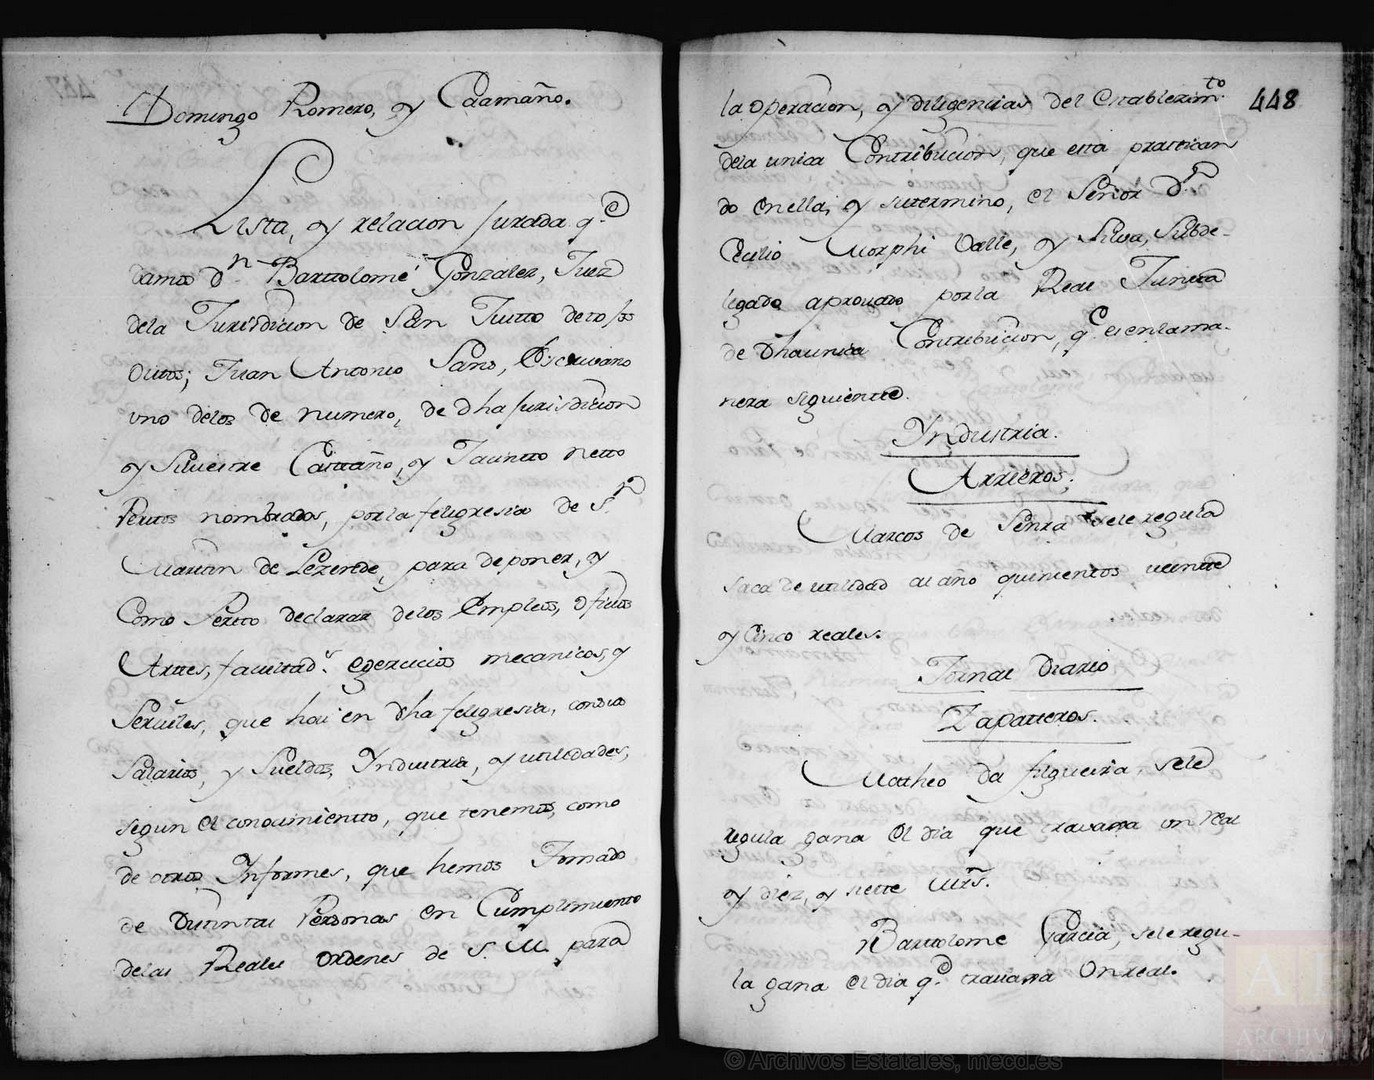 Domingo Romero, y Caamaño.
Lista, y relacion Jurada q.e
damos d.n Bartolomé Gonzalez, Juez
dela Jurisdicion de San Justto de tojos
Outos; Juan Antonio Sans, Escrivano
uno delos de numero, de dha Jurisdicion
y Silvestre Casttaño, y Jacintto Netto
Peritos nombrados, porla feligresia de S.n
Martin de Lezende, para deponer, y
Como Peritto declarar delos Empleos, oficios
Arttes, facultad.s egercicios mecanicos, y
Serviles, que hai en dha feligresia, con sus
Salarios, y Sueldos, Yndustria, y utilidades,
segun el conocimientto, que tenemos, como
de otros Ynformes, que hemos Tomado
de Distintas Personas en Cumplimiento
delas Reales ordenes de S. M. para
la operacion, y diligencias del establecim.to
dela unica Contribucion, que está practican
do en ella, y su termino, el Señor d.n
Cecilio Morphi Valle, y Silva, Subde-
legado aprovado porla Real Juntta
de dha unica Contribucion, q.e es enlama-
nera siguientte.
Yndustria.
Arrieros.
Marcos de Senra sele regula
saca de utilidad al año quinientos veintte
y Cinco reales.
Jornal Diario
Zapatteros.
Matheo da filgueira, sele
regula gana el dia que travaxa un real
y diez, y siette mrs.
Bartolome Garcia, sele regu-
la gana el dia q.e travaxa Un real.
448
© Archivos Estatales, mecd.es
ARCHIVOS
ESTATALES